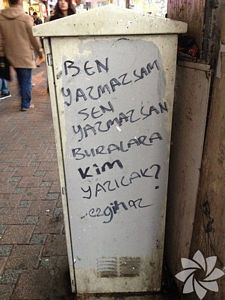 BEN
YAZMAZSAM
SEN
YAZMAZSAN
BURALARA
KiM
YAZICAK?
ezginaz